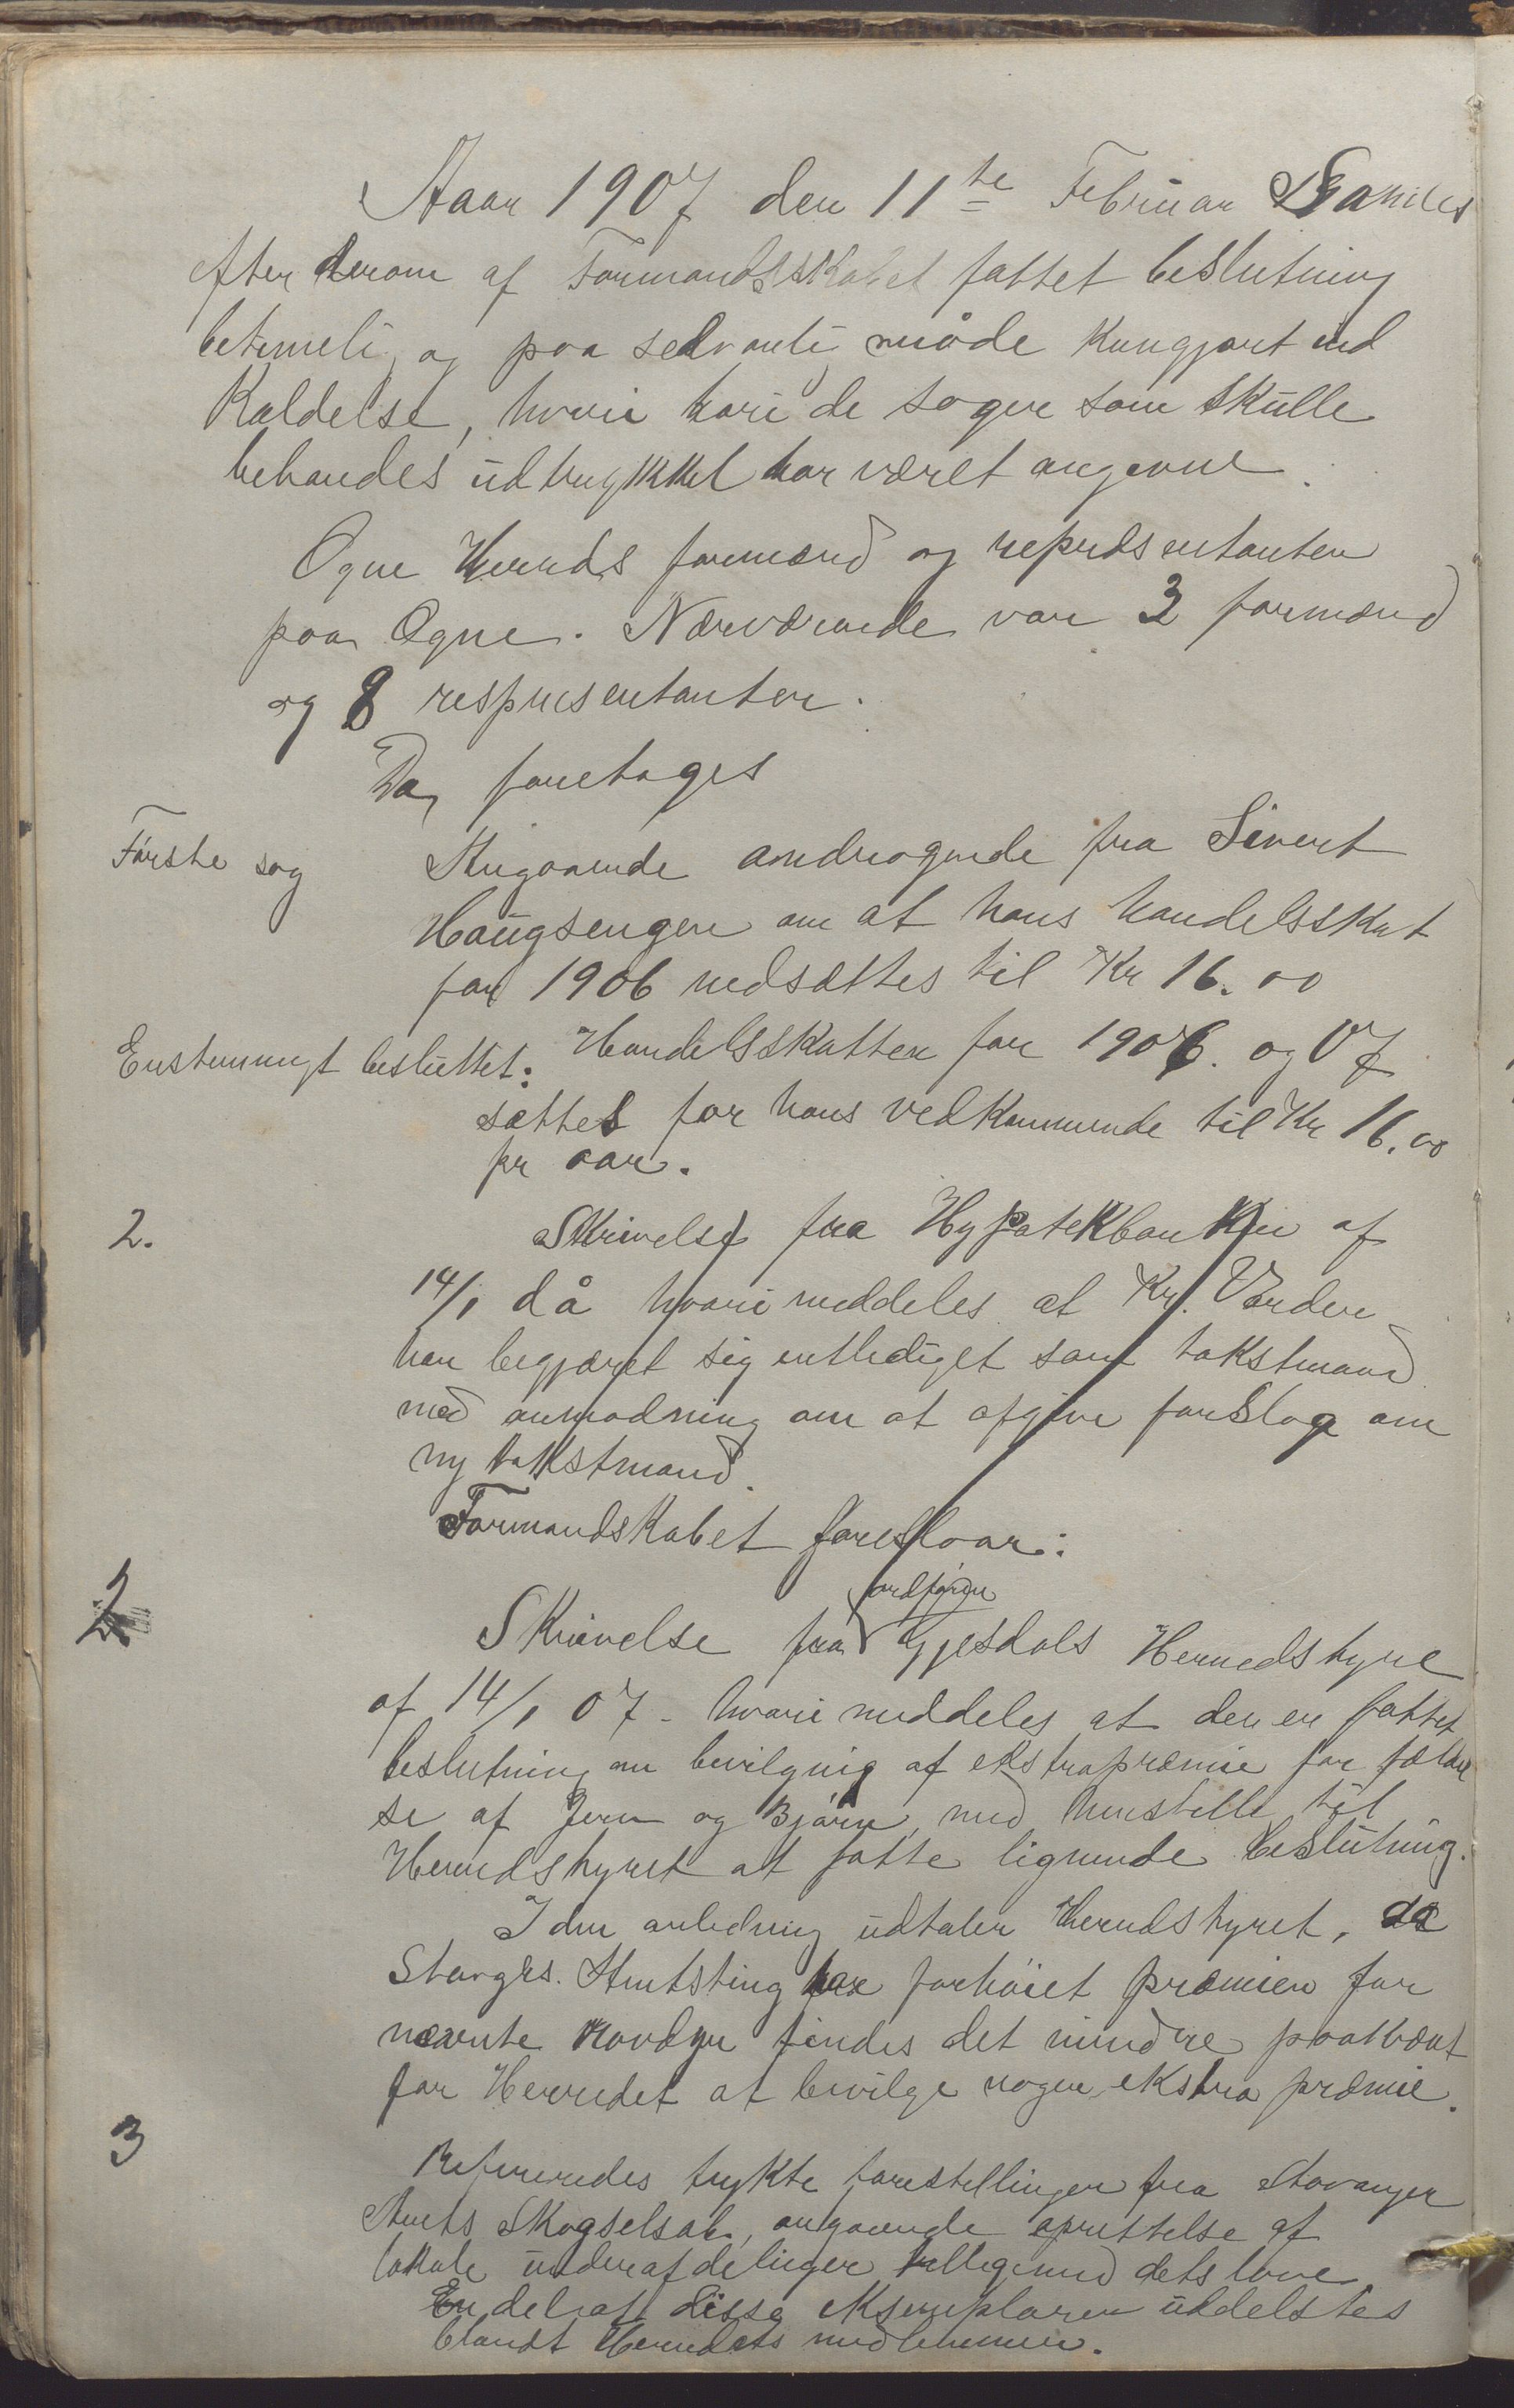 Aar 1907 den 11te Februar Samles
efter derom af Formandsskabet fattet beslutning
betimeli og paa sedvanli måde kungjort ind
Kaldelse, hvori hvori de sager som skulle
behandes udtrykkel har været angivne.
Ogne Herreds formænd og repræsentanter
paa Ogne. Nærværende var 3 formænd
og 8 respresentanter.
Da foretages
Første sag Angaaende andragende fra Sivert
Haugsengen om at hans handelsskat
for 1906 nedsættes til Kr 16.00
Enstemmigt besluttet: Handelsskatten for 1906. og 07
sættes for hans vedkommende til Kr 16.00
pr aar.
2. Skrivelse fra Hypotekbanken af
14/1 då hvori meddeles at Kr. Varden
har begjæret sig entlediget som takstmand
med anmodning om at afgive forslag om
ny takstmand.
Formandskabet foreslaar:
ordføren
2 Skrivelse fra Gjesdals Herredstyre
af 14/1 07 - hvori meddeles at der er fattet
beslutning om bevilgnig af ekstrapræmie for fældel
se af Jerv og Bjørn, med henstille til
Herredstyret at fatte lignende beslutning.
I den anledning udtaler Herredstyret, da
Stavgrs. Amtsting har forhøiet præmien for
nævnte Rovdyr findes det mindre paakrævet
for Herredet at bevilge nogen ekstra præmie.
3 Refereredes trykte forestillinger fra Stavanger
Amts Skogselsab, angaaende oprettelse af
lokale underafdelinger tilligemed dets love.
En del af disse eksemplarer uddelstes
blandt Herredets medlemmer.